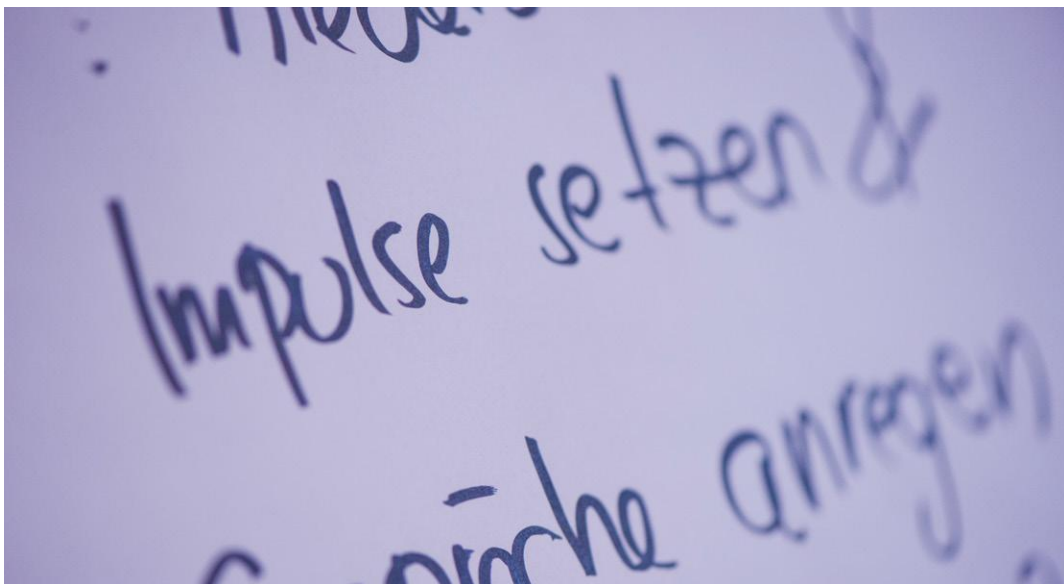 Impulse setzen &
Gespräche anregen